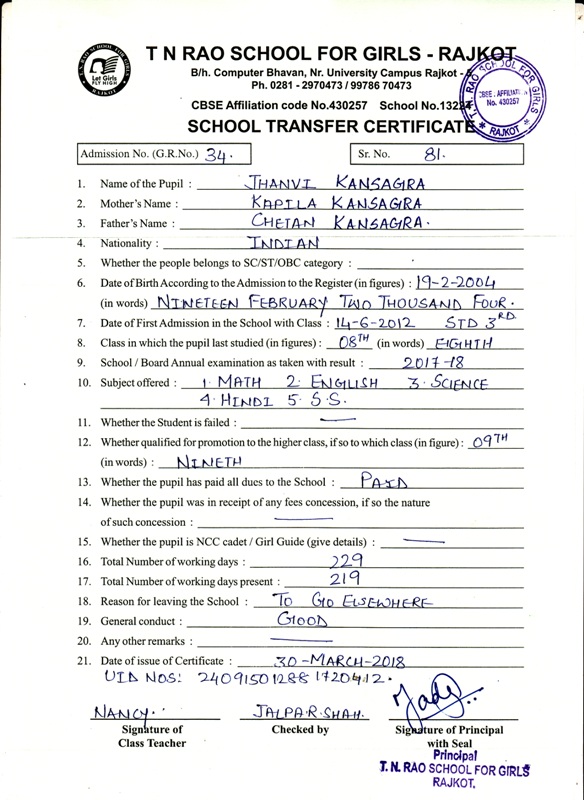 T. N. RAO SCHOOL FOR GIRLS
Let Girls
FLY HIGH
RAJKOT
T N RAO SCHOOL FOR GIRLS - RAJKOT
B/h. Computer Bhavan, Nr. University Campus Rajkot -
Ph. 0281 - 2970473 / 99786 70473
CBSE Affiliation code No.430257 School No.
T. N. RAO SCHOOL FOR GIRLS
CBSE : AFFILIATION
No. 430257
RAJKOT
SCHOOL TRANSFER CERTIFICATE
Admission No. (G.R.No.) 34. Sr. No. 81.
1. Name of the Pupil : JHANVI KANSAGIRA
2. Mother's Name : KAPILA KANSAGIRA
3. Father's Name : CHETAN KANSAGIRA.
4. Nationality : INDIAN
5. Whether the people belongs to SC/ST/OBC category :
6. Date of Birth According to the Admission to the Register (in figures) : 19-2-2004
(in words) NINETEEN FEBRUARY TWO THOUSAND FOUR.
7. Date of First Admission in the School with Class : 14-6-2012 STD 3RD.
8. Class in which the pupil last studied (in figures) : 08TH (in words) EIGHTH
9. School / Board Annual examination as taken with result : 2017-18
10. Subject offered : 1. MATH 2. ENGLISH 3. SCIENCE
4. HINDI 5. S.S.
11. Whether the Student is failed : —
12. Whether qualified for promotion to the higher class, if so to which class (in figure) : 09TH
(in words) : NINETH
13. Whether the pupil has paid all dues to the School : PAID
14. Whether the pupil was in receipt of any fees concession, if so the nature
of such concession : —
15. Whether the pupil is NCC cadet / Girl Guide (give details) : —
16. Total Number of working days : 229
17. Total Number of working days present : 219
18. Reason for leaving the School : TO GO ELSEWHERE
19. General conduct : GOOD
20. Any other remarks : —
21. Date of issue of Certificate : 30-MARCH-2018
UID NOS: 24091501288 1720412.
NANCY. JALPA.R.SHAH.
Signature of Checked by Signature of Principal
Class Teacher with Seal
Principal
T. N. RAO SCHOOL FOR GIRLS
RAJKOT.